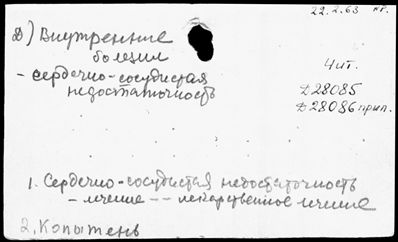 22.2.63 кг.
Д) Внутренние
болезни
- сердечно-сосудистая
недостаточность
Чит.
Д28085
Д28086 прил.
1. Сердечно-сосудистая недостаточность
- лечение -- лекарственное лечение
2. Копытень